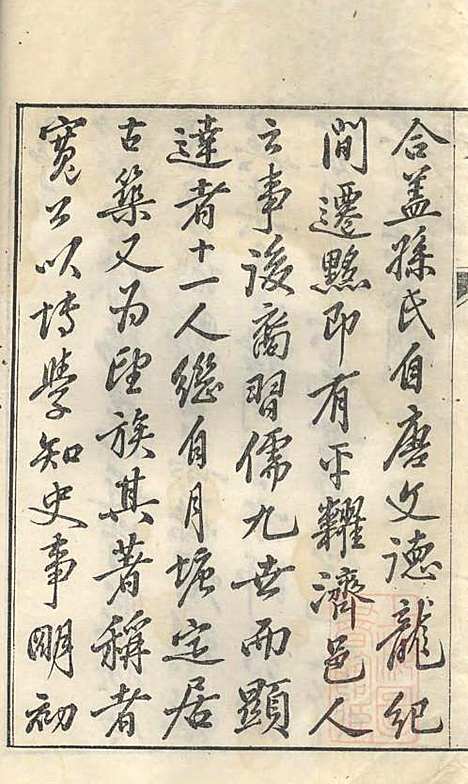 合盖孫氏自唐文德龍紀
間遷黟即有平糶濟邑人
之事後裔習儒九世而顯
達者十一人繼自月塘定居
古築又为望族其著稱者
寛公以博學知史事明初